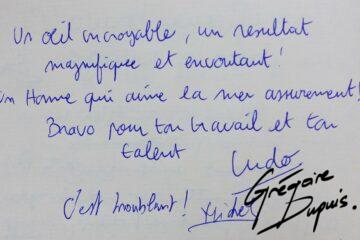 Un œil incroyable, un resultat
magnifique et envoutant!
Un Homme qui aime la mer assurement!
Bravo pour ton travail et ton
talent
Ludo
C'est troublant! Michel
Grégoire
Dupuis.